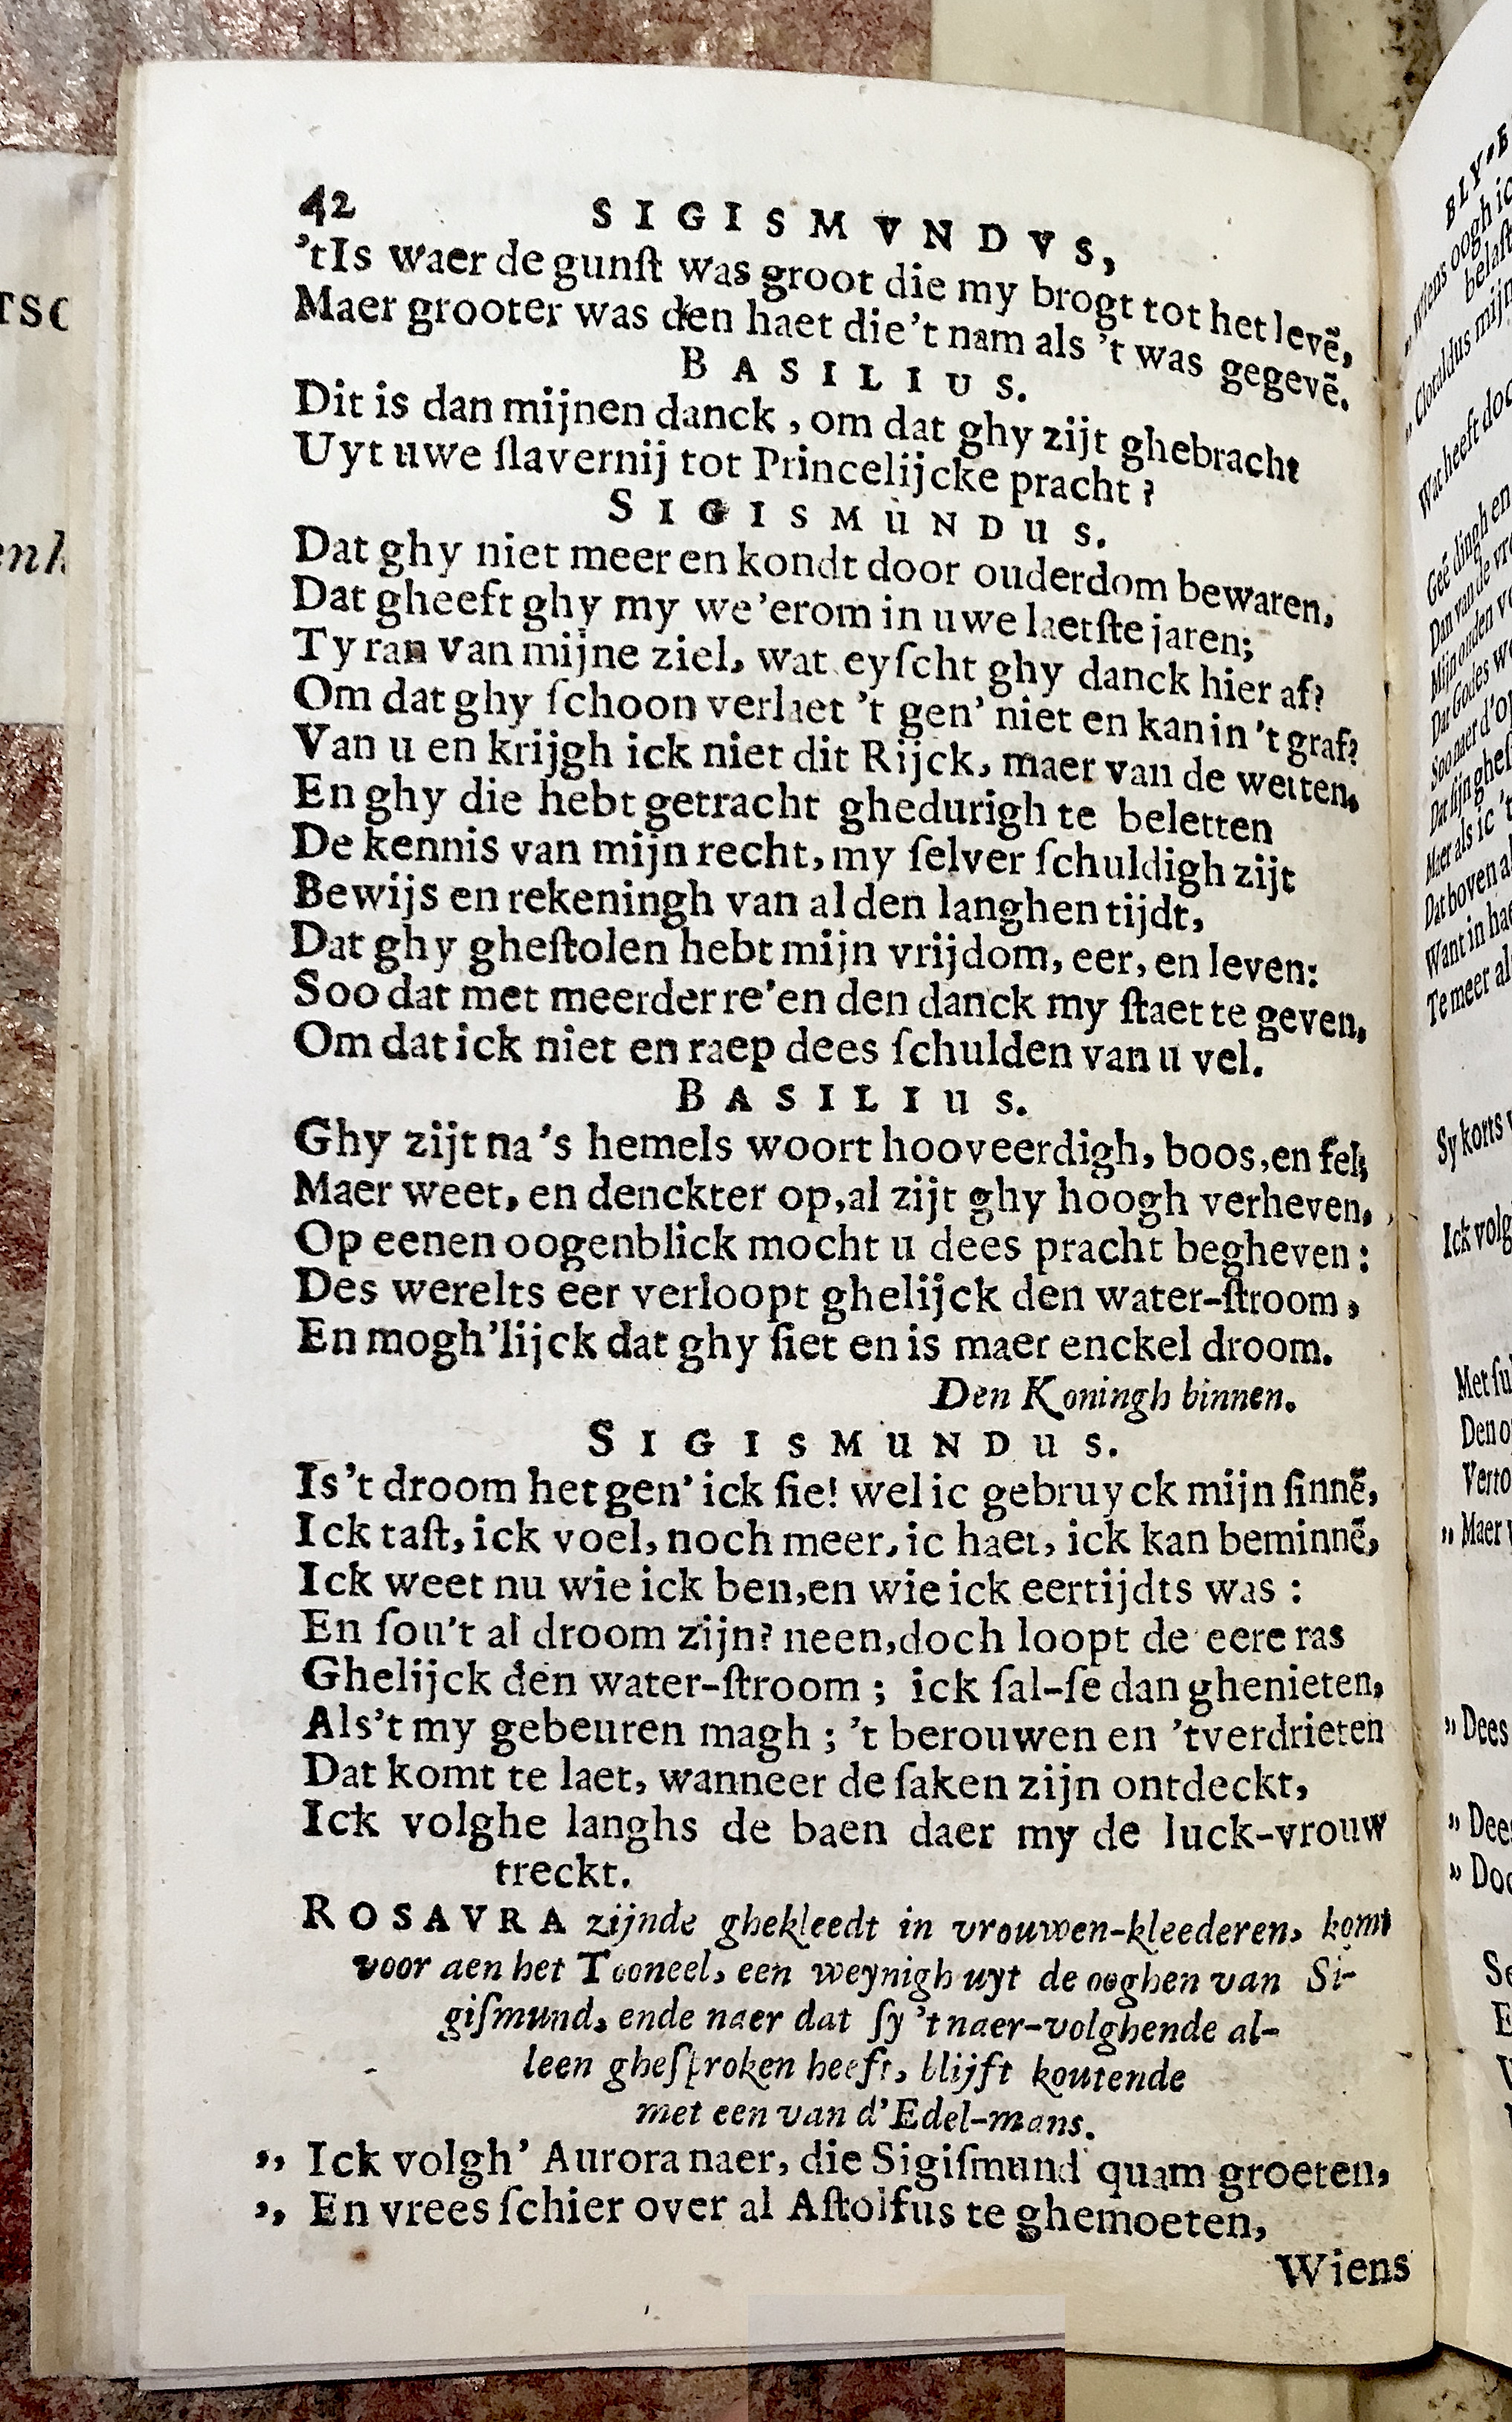 42
SIGISMVNDVS,
'tIs waer de gunſt was groot die my brogt tot het levẽ,
Maer grooter was den haet die't nam als 't was gegevẽ.
BASILIUS.
Dit is dan mijnen danck, om dat ghy zijt ghebracht
Uyt uwe ſlavernij tot Princelijcke pracht?
SIGISMUNDUS.
Dat ghy niet meer en kondt door ouderdom bewaren,
Dat gheeft ghy my we'erom in uwe laetſte jaren;
Tyran van mijne ziel, wat eyſcht ghy danck hier af?
Om dat ghy ſchoon verlaet 't gen' niet en kan in 't graf?
Van u en krijgh ick niet dit Rijck, maer van de wetten,
En ghy die hebt getracht ghedurigh te beletten
De kennis van mijn recht, my ſelver ſchuldigh zijt
Bewijs en rekeningh van al den langhen tijdt,
Dat ghy gheſtolen hebt mijn vrijdom, eer, en leven:
Soo dat met meerder re'en den danck my ſtaet te geven,
Om dat ick niet en raep dees ſchulden van u vel.
BASILIUS.
Ghy zijt na 's hemels woort hooveerdigh, boos, en fel;
Maer weet, en denckter op, al zijt ghy hoogh verheven,
Op eenen oogenblick mocht u dees pracht begheven:
Des werelts eer verloopt ghelijck den water-ſtroom,
En mogh'lijck dat ghy ſiet en is maer enckel droom.
Den Koningh binnen.
SIGISMUNDUS.
Is't droom het gen' ick ſie! wel ic gebruyck mijn ſinnẽ,
Ick taſt, ick voel, noch meer, ic haet, ick kan beminnẽ,
Ick weet nu wie ick ben, en wie ick eertijdts was:
En ſou't al droom zijn? neen, doch loopt de eere ras
Ghelijck den water-ſtroom; ick ſal-ſe dan ghenieten,
Als't my gebeuren magh; 't berouwen en 'tverdrieten
Dat komt te laet, wanneer de ſaken zijn ontdeckt,
Ick volghe langhs de baen daer my de luck-vrouw
treckt.
ROSAVRA zijnde ghekleedt in vrouwen-kleederen, komt
voor aen het Tooneel, een weynigh uyt de ooghen van Si-
giſmund, ende naer dat ſy 't naer-volghende al-
leen gheſproken heeft, blijft koutende
met een van d'Edel-mans.
,, Ick volgh' Aurora naer, die Sigiſmund quam groeten,
,, En vrees ſchier over al Aſtolfus te ghemoeten,
Wiens